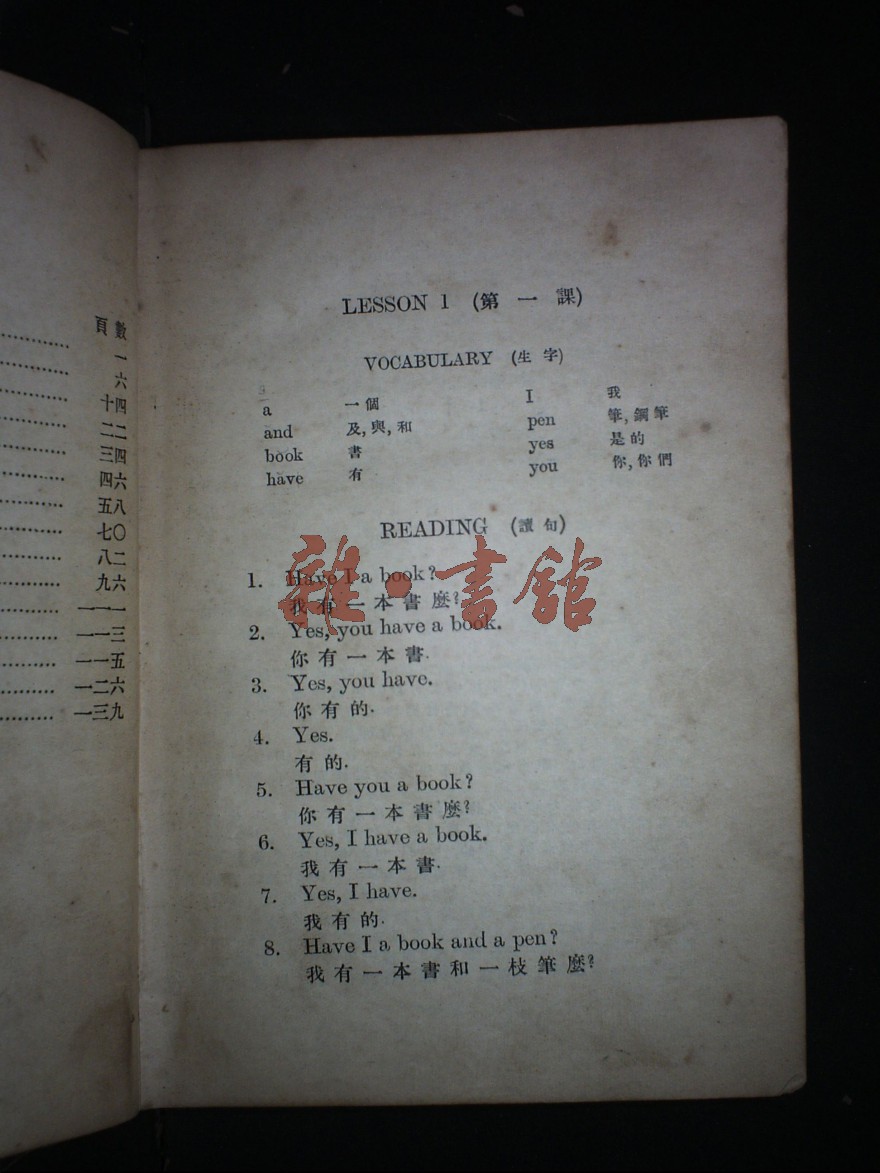 數頁
一
六
十四
二二
三四
四六
五八
七〇
八二
九六
一一一
一一三
一一五
一二六
一三九
LESSON 1 (第一課)
VOCABULARY (生字)
a 一個 I 我
and 及,與,和 pen 筆,鋼筆
book 書 yes 是的
have 有 you 你,你們
READING (讀句)
雜·書館
1. Have I a book?
我有一本書麼?
2. Yes, you have a book.
你有一本書.
3. Yes, you have.
你有的.
4. Yes.
有的.
5. Have you a book?
你有一本書麼?
6. Yes, I have a book.
我有一本書.
7. Yes, I have.
我有的.
8. Have I a book and a pen?
我有一本書和一枝筆麼?